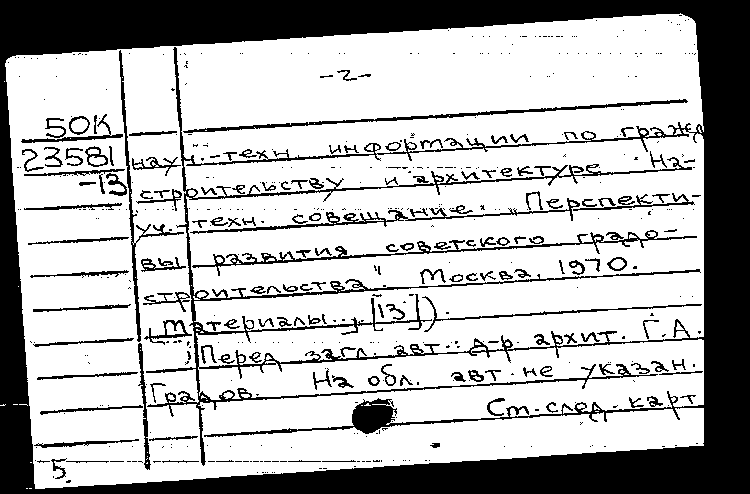 -2-
50К
23581
-13
науч.-техн. информации по гражд
строительству и архитектуре. На-
уч.-техн. совещание. "Перспекти-
вы развития советского градо-
строительства". Москва, 1970.
[Материалы.]. [13]).
Перед загл. авт.: д-р архит. Г.А.
Градов. На обл. авт. не указан.
См. след. карт
5.